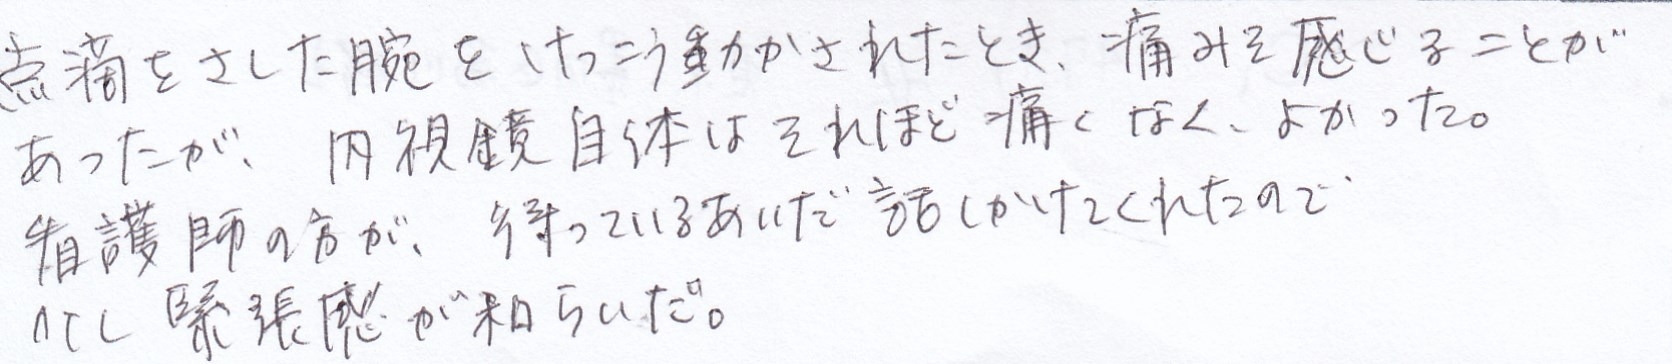 点滴をさした腕をけっこう動かされたとき、痛みを感じることが
あったが、内視鏡自体はそれほど痛くなく、よかった。
看護師の方が、待っているあいだ話しかけてくれたので
少し緊張感が和らいだ。